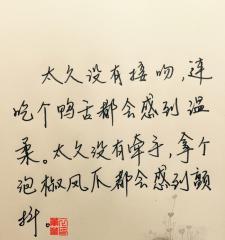 太久没有接吻,连
吃个鸭舌都会感到温
柔。太久没有牵手,拿个
泡椒凤爪都会感到颤
抖。